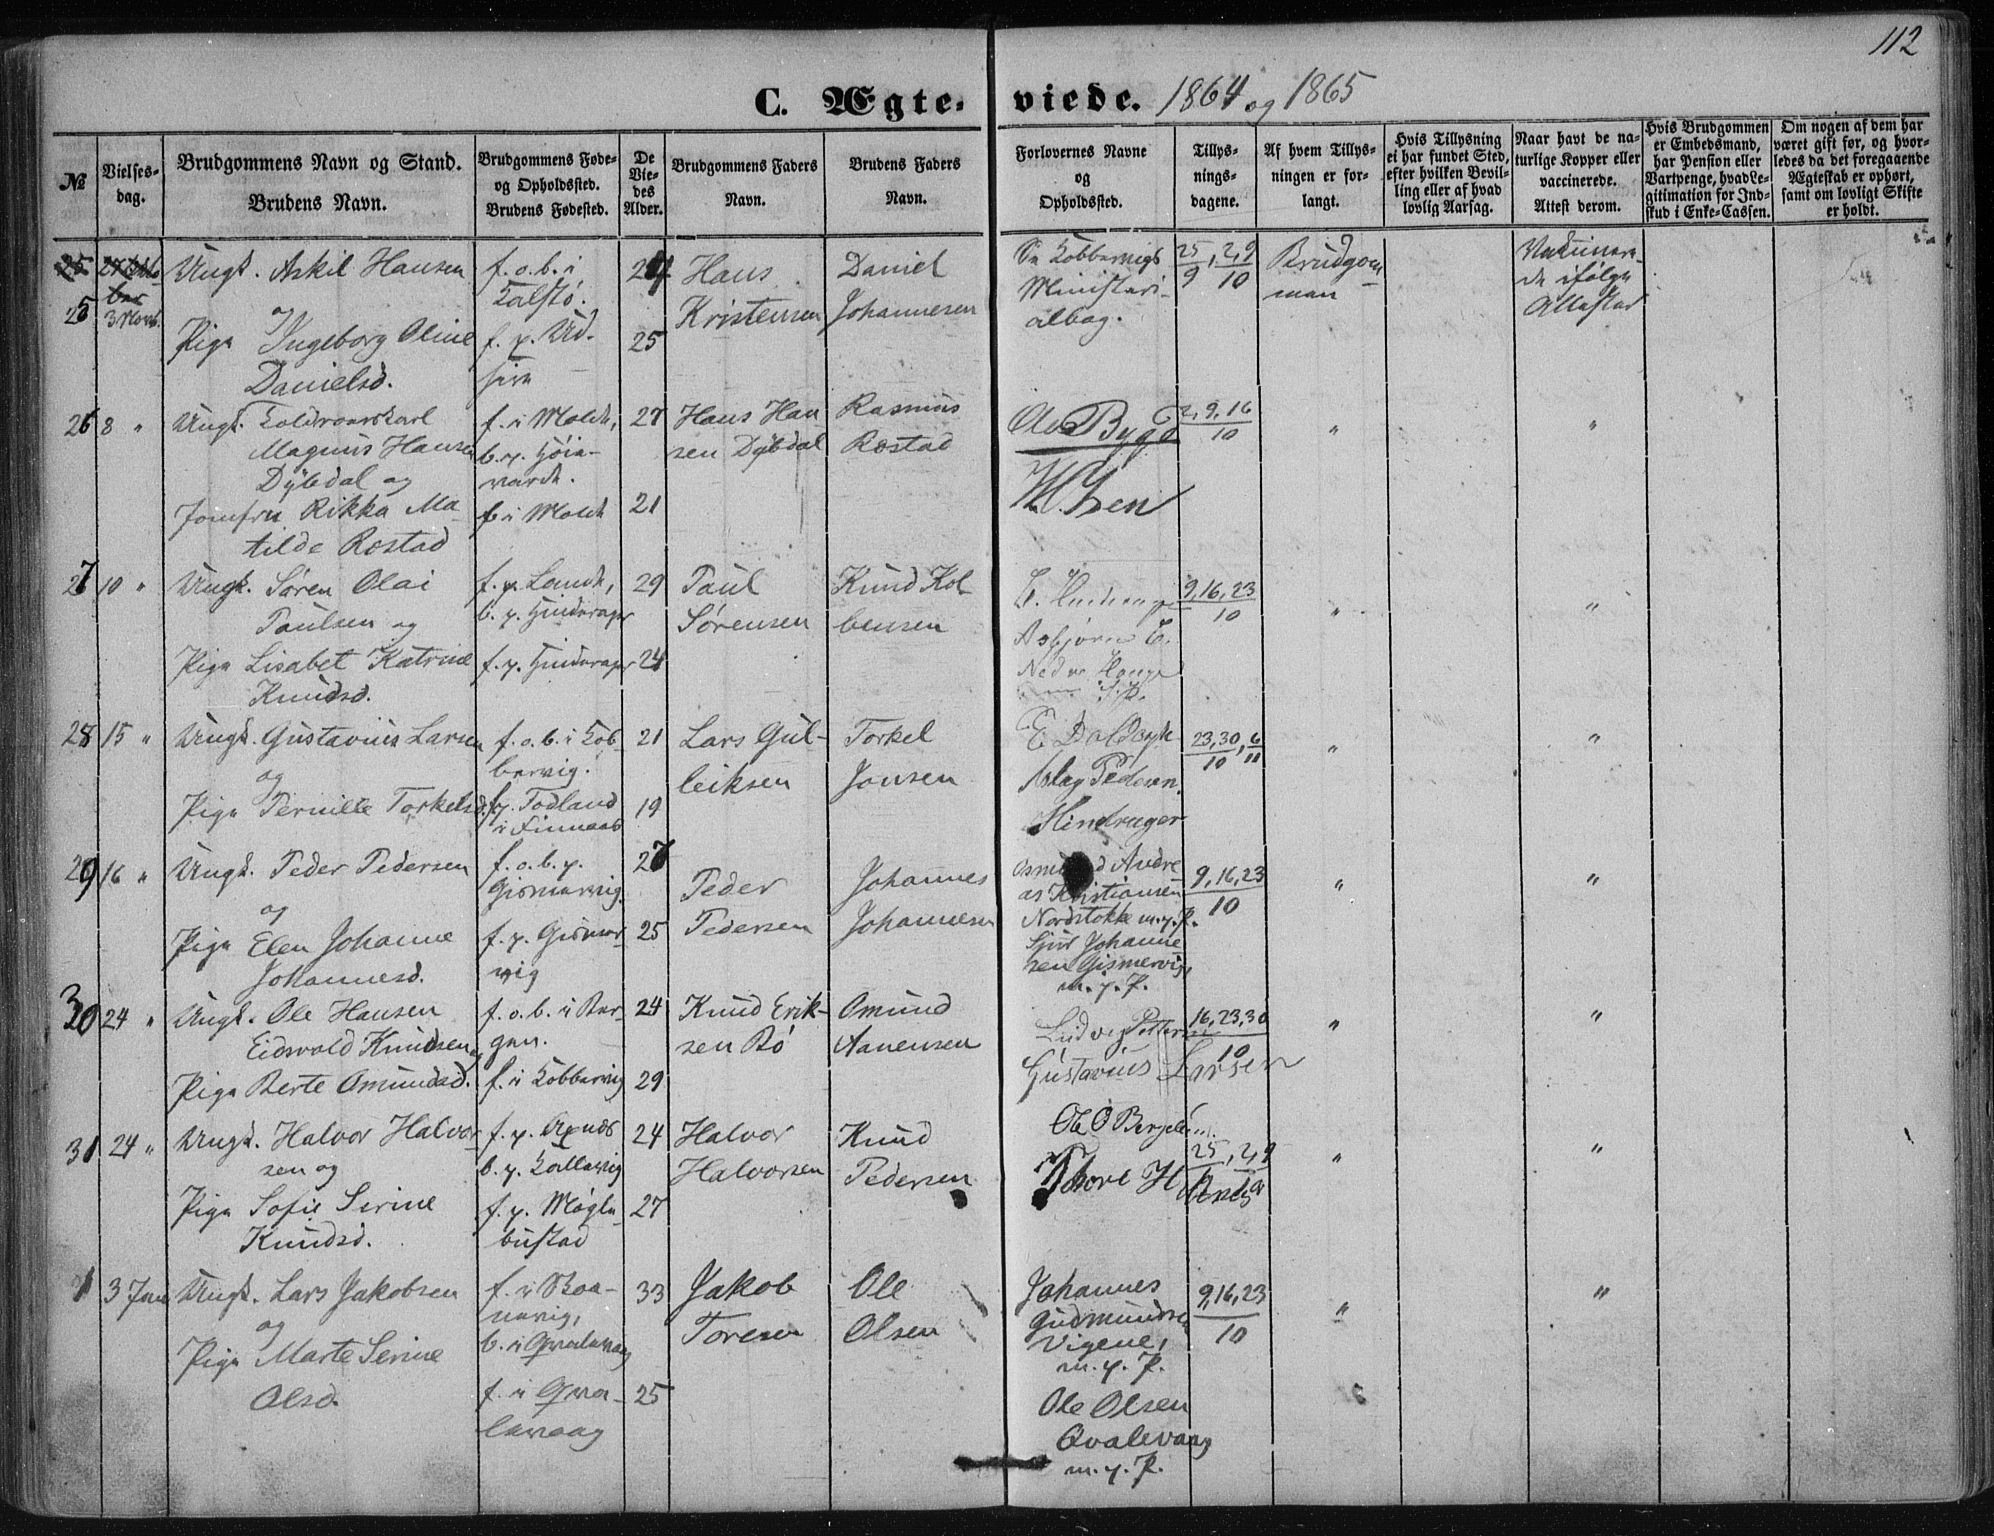 112
C. Ægteviede. 1864 og 1865
№
Vielses-
dag.
Brudgommens Navn og Stand.
Brudens Navn.
Brudgommens Føde-
og Opholdssted.
Brudens Fødested.
De
Vie-
des
Alder.
Brudgommens Faders
Navn.
Brudens Faders
Navn.
Forlovernes Navne
og
Opholdssted.
Tillys-
nings-
dagene.
Af hvem Tillys-
ningen er for-
langt.
Hvis Tillysning
ei har fundet Sted,
efter hvilken Bevil-
ling eller af hvad
lovlig Aarsag.
Naar havt de na-
turlige Kopper eller
vaccinerede.
Attest derom.
Hvis Brudgommen
er Embedsmand,
har Pension eller
Vartpenge, hvad Le-
gitimation for Ind-
skud i Enke-Cassen.
Om nogen af dem har
været gift før, og hvor-
ledes da det foregaaende
Ægteskab er ophørt,
samt om lovligt Skifte
er holdt.
25
3 Novb.
Ungk. Askil Hansen
og
Pige Ingeborg Oline
Danielsd.
f. o. b. i
Kalstø.
f. p. Ud-
sire
24
25
Hans
Kristensen
Daniel
Johannesen
Se Kobbervigs
Ministeri-
albog.
25/9, 2,9/10
Brudgom-
men
Vakcinere-
de ifølge
Attester
26 8 "
Ungk. Toldroerskarl
Magnus Hansen
Dybdal og
Jomfru Rikka Ma-
tilde Rostad
f. i Molde,
b. p. Høie-
varde.
f. i Molde
27
21
Hans Han
sen Dybdal
Rasmus
Rostad
Ole Bygd
2,9,16
10
"
"
27 10 "
Ungk. Søren Olai
Paulsen og
Pige Lisabet Katrine
Knudsd.
f. p. Lande,
b. p. Hinderager
f. p. Hinderager
29
24
Paul
Sørensen
Knud Kol
bensen
Asbjørn E.
9,16,23
10
"
"
28 15 "
Ungk. Gustavius Larsen
og
Pige Pernille Torkelsd.
f. o. b. i Kob-
bervig.
f. p. Todland
i Finnaas
21
19
Lars Gul-
leiksen
Torkel
Jonsen
Aslag Pedersen
Hindrager
23,30/10, 6/11
"
"
29 16 "
Ungk. Peder Pedersen
og
Pige Elen Johanne
Johannesd.
f. o. b. p.
Gismervig.
f. p. Gismer-
vig
27
25
Peder
Pedersen
Johannes
Johannesen
Osmund Andre-
as Kristiansen
Nordstokke m. p. P.
Sjur Johanne
sen Gismervig,
m. p. P.
9,16,23
10
"
"
30 24 "
Ungk. Ole Hansen
Eidsvold Knudsen og
Pige Berte Omundsd.
f. o. b. i Ber-
gen.
f. i Kobbervig
24
29
Knud Erik-
sen Bø
Omund
Aanensen
Ludvig Pettersen
Gustavius Larsen
16,23,30
10
"
"
31 24 "
Ungk. Halvor Halvor
sen og
Pige Sofie Serine
Knudsd.
b. p. Kallevig
f. p. Møgle-
bustad
24
27
Halvor
Halvorsen
Knud
Pedersen
Tore H
25, 2,9
"
"
1 3 Jan
Ungk. Lars Jakobsen
og
Pige Marte Serine
Olsd.
b. i Qvalevaag
f. i Qva-
levaag
33
25
Jakob
Toresen
Ole
Olsen
Johannes
Gudmundsen
Vigene,
m. p. P.
Ole Olsen
Qvalevaag
m. p. P.
9,16,23
10
"
"